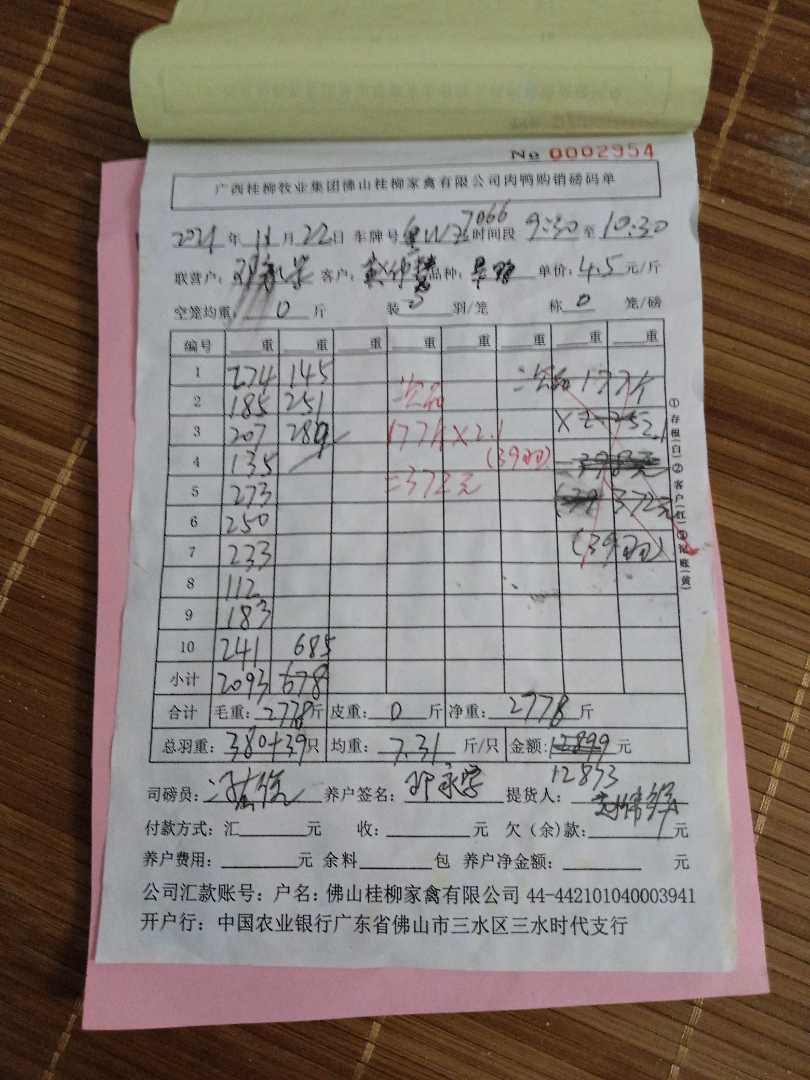 No 0002954
广西桂柳牧业集团佛山桂柳家禽有限公司肉鸭购销磅码单
2021年11月22日 车牌号 7066 时间段 9:30 至 10:30
联营户: 客户: 品种: 单价: 4.5 元/斤
空笼均重: 0 斤 装 羽/笼 称 0 笼/磅
编号 重 重 重 重 重 重 重 重
1 274 145 二次品 177斤
2 185 251 二次品 × 2.1
3 207 289 177斤×2.1
4 135 (39羽)
5 273 =372元 372元
6 250
7 233 (39羽)
8 112
9 183
10 241 685
小计 2093 678
合计 毛重: 2778 斤 皮重: 0 斤 净重: 2778 斤
总羽重: 380+39 只 均重: 7.31 斤/只 金额: 12899 元
12873
司磅员: 养户签名: 邓永学 提货人:
付款方式: 汇 元 收: 元 欠(余)款: 元
养户费用: 元 余料 包 养户净金额: 元
公司汇款账号: 户名: 佛山桂柳家禽有限公司 44-442101040003941
开户行: 中国农业银行广东省佛山市三水区三水时代支行
①存根(白)②客户(红)③记账(黄)